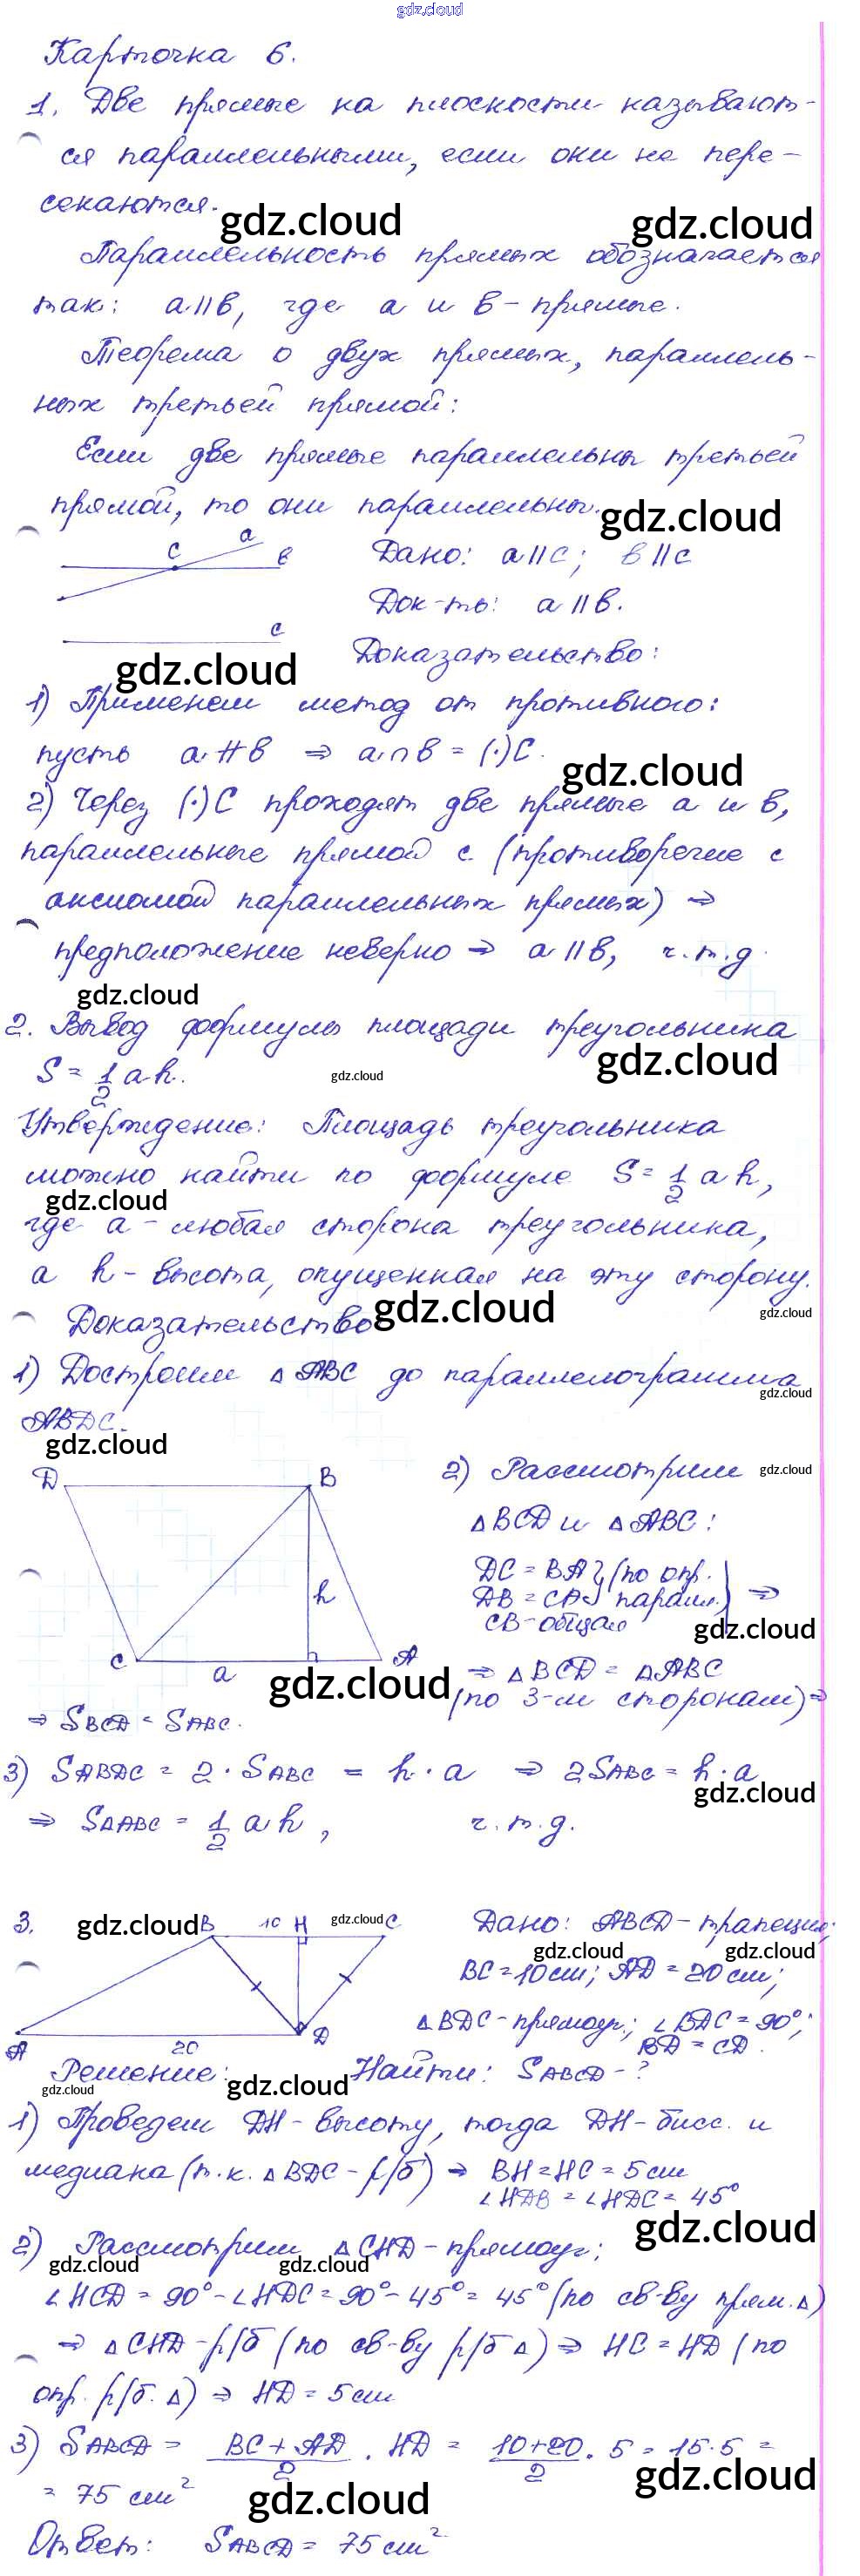 gdz.cloud
Карточка 6.
1. Две прямые на плоскости называют-
ся параллельными, если они не пере-
секаются.
gdz.cloud
gdz.cloud
Параллельность прямых обозначается
так: a||b, где a и b - прямые.
Теорема о двух прямых, параллель-
ных третьей прямой:
Если две прямые параллельны третьей
прямой, то они параллельны.
gdz.cloud
C a b
c
Дано: a||c; b||c
Док-ть: a||b.
Доказательство:
gdz.cloud
1) Применем метод от противного:
пусть a ∦ b ⇒ a∩b = (·)C.
gdz.cloud
2) Через (·)C проходят две прямые a и b,
параллельные прямой c (противоречие с
аксиомой параллельных прямых) ⇒
предположение неверно ⇒ a||b, ч.т.д.
gdz.cloud
2. Вывод формулы площади треугольника
S = 1/2 ah.
gdz.cloud
gdz.cloud
Утверждение: Площадь треугольника
можно найти по формуле S = 1/2 ah,
gdz.cloud
где a - любая сторона треугольника,
а h - высота, опущенная на эту сторону.
Доказательство
gdz.cloud
gdz.cloud
1) Достроим △ABC до параллелограмма
gdz.cloud
ABDC.
gdz.cloud
D B
h
C a A
2) Рассмотрим
gdz.cloud
△BCD и △ABC:
DC = BA } (по опр.
DB = CA } паралл.)
CB - общая
⇒
gdz.cloud
⇒ △BCD = △ABC
gdz.cloud
(по 3-м сторонам) ⇒
⇒ SBCD = SABC.
3) SABDC = 2 · SABC = h · a ⇒ 2SABC = h · a
gdz.cloud
⇒ S△ABC = 1/2 ah, ч.т.д.
3.
gdz.cloud
B 10 H C
gdz.cloud
A 20 D
Дано: ABCD - трапеция;
gdz.cloud
gdz.cloud
BC = 10 см; AD = 20 см;
△BDC - прямоуг.; ∠BDC = 90°;
BD = CD.
Найти: SABCD - ?
Решение:
gdz.cloud
gdz.cloud
1) Проведем DH - высоту, тогда DH - бисс. и
медиана (т.к. △BDC - р/б) ⇒ BH = HC = 5 см
∠HDB = ∠HDC = 45°
gdz.cloud
2) Рассмотрим △CHD - прямоуг;
gdz.cloud
gdz.cloud
∠HCD = 90° - ∠HDC = 90° - 45° = 45° (по св-ву прям. △)
⇒ △CHD - р/б (по св-ву р/б △) ⇒ HC = HD (по
опр. р/б. △) ⇒ HD = 5 см
3) SABCD = (BC + AD)/2 · HD = (10+20)/2 · 5 = 15 · 5 =
gdz.cloud
= 75 см²
gdz.cloud
Ответ: SABCD = 75 см²